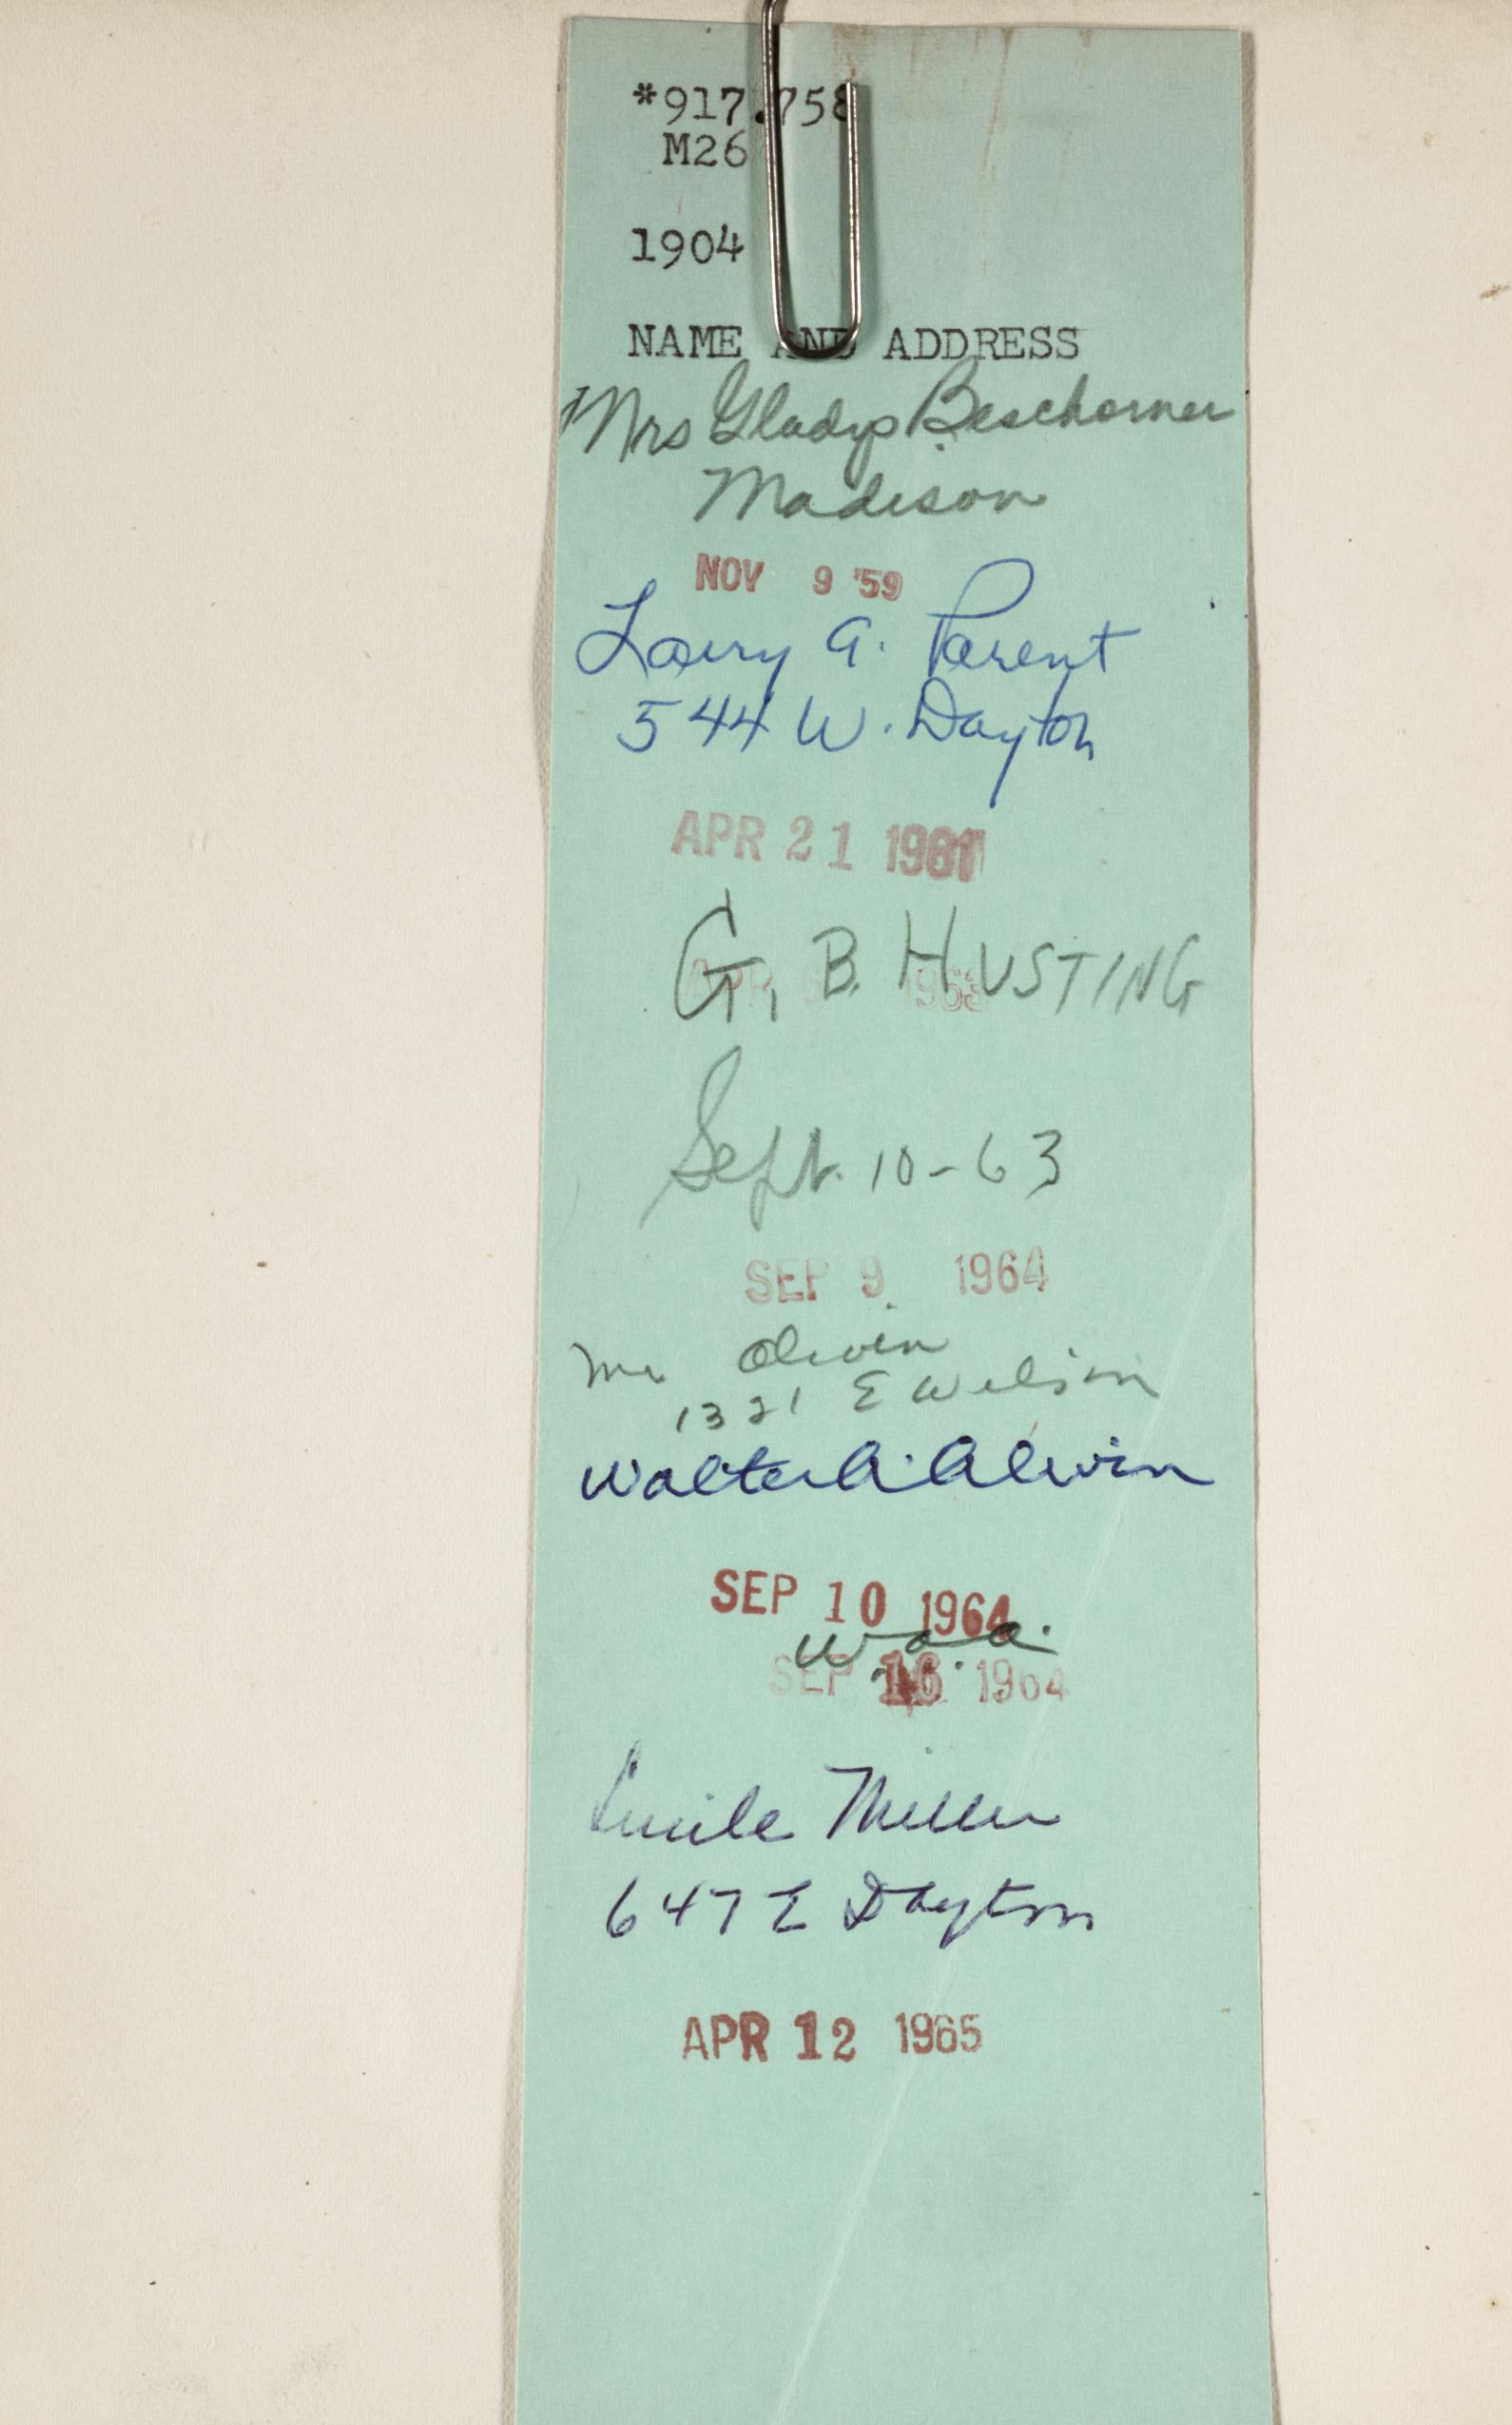 *917.758
M26
1904
NAME AND ADDRESS
Mrs Gladys Beschorner
Madison
NOV 9 '59
Larry A. Parent
544 W. Dayton
APR 21 1961
G. B. HUSTING
APR 1963
Sept. 10-63
SEP 9 1964
Mr Olwin
1321 E Wilson
Walter A. Alwin
SEP 10 1964
W.A.A.
SEP 16 1964
Lucile Miller
647 E Dayton
APR 12 1965